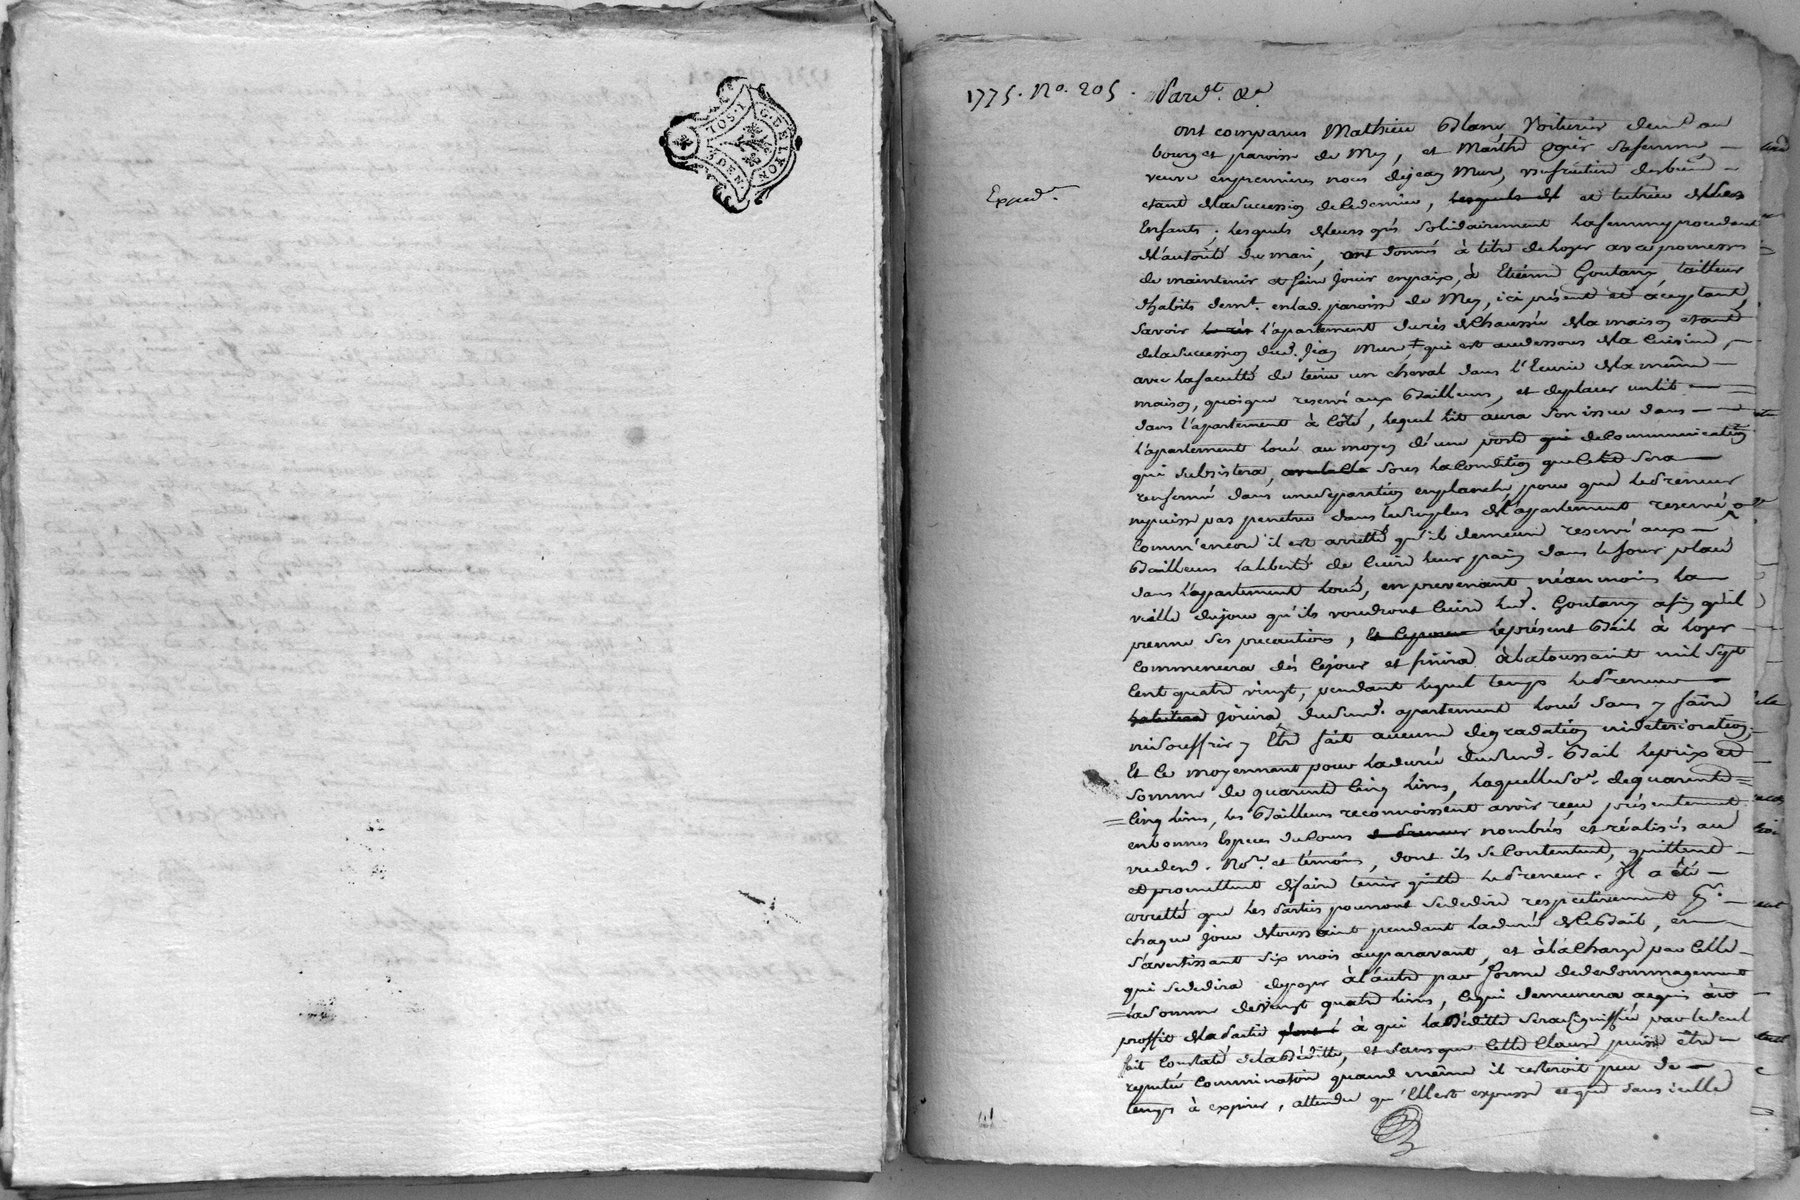 G. DE LYON
1775. No. 205. Pardt. &a
ont comparus Mathieu Blanc Voiturier demt au
bourg et paroisse de Mey, et Marthe Ogier sa femme
veuve en premieres noces de Jean Mur, usufruitiere des biens
Expéde.
etant de la succession de ce dernier, et tutrice de Leurs
Enfants; Lesquels de leurs grés solidairement la femme procedant
de l'autorité du mari, ont donnés à titre de loyer avec promesses
de maintenir et faire jouir en paix, à Etienne Goutany tailleur
d'habits demt. en lad. paroisse de Mey, ici présent et acceptant,
Savoir l'apartement du rés de Chaussée de la maison etant
de la succession dud. Jean Mur + qui est au dessous de la Cuisine,
avec la faculté de tenir un cheval dans l'Ecurie de la même
maison, quoique reservé aux Bailleurs, et de placer un lit
dans l'apartement à Côté, lequel lit aura son issue dans
l'apartement loué au moyen d'une porte de communication
qui subsistera, sous la condition que le lit sera
renfermé dans une separation en planche pour que le Preneur
ne puisse pas penetrer dans le surplus de l'apartement reservé,
Comm'encore il est arretté qu'il demeure reservé aux
Bailleurs la liberté de Cuire leur pain dans le four placé
dans l'apartement loué, en prevenant néanmoins la
veille du jour qu'ils voudront Cuire led. Goutany afin qu'il
prenne ses precautions, le présent Bail à loyer
Commencera dès ce jour et finira à la toussaint mil sept
Cent quatre vingt, pendant lequel temps le Preneur
Jouira du susd. apartement loué sans y faire
ni souffrir y être fait aucune degradation ni deterioration,
Et ce moyennant pour la durée du susd. Bail le prix et
somme de quarante Cinq livres, laquelle So.e de quarante
Cinq livres, les Bailleurs reconnoissent avoir reçu présentement
en bonnes Especes du Cours nombrés et réalisés au
vu desd. Nores et témoins, dont ils se Contentent, quittent
et promettent de faire tenir quitte le Preneur. Il a été
arretté que les Parties pourront se dedire respectivement
chaque jour de toussaint pendant la durée de ce Bail, en
s'avertissant six mois auparavant, et à la Charge par Celle
qui se dedira de payer à l'autre par forme de dedommagement
la somme de vingt quatre livres, ce qui demeurera acquis au
proffit de la Partie à qui la Dédite sera signiffiée par le seul
fait Constaté de la Dédite, et sans que Cette Clause puisse être
reputée Comminatoire quand même il resteroit peu de
temps à expirer, attendu qu'Elle est expresse et que sans icelle